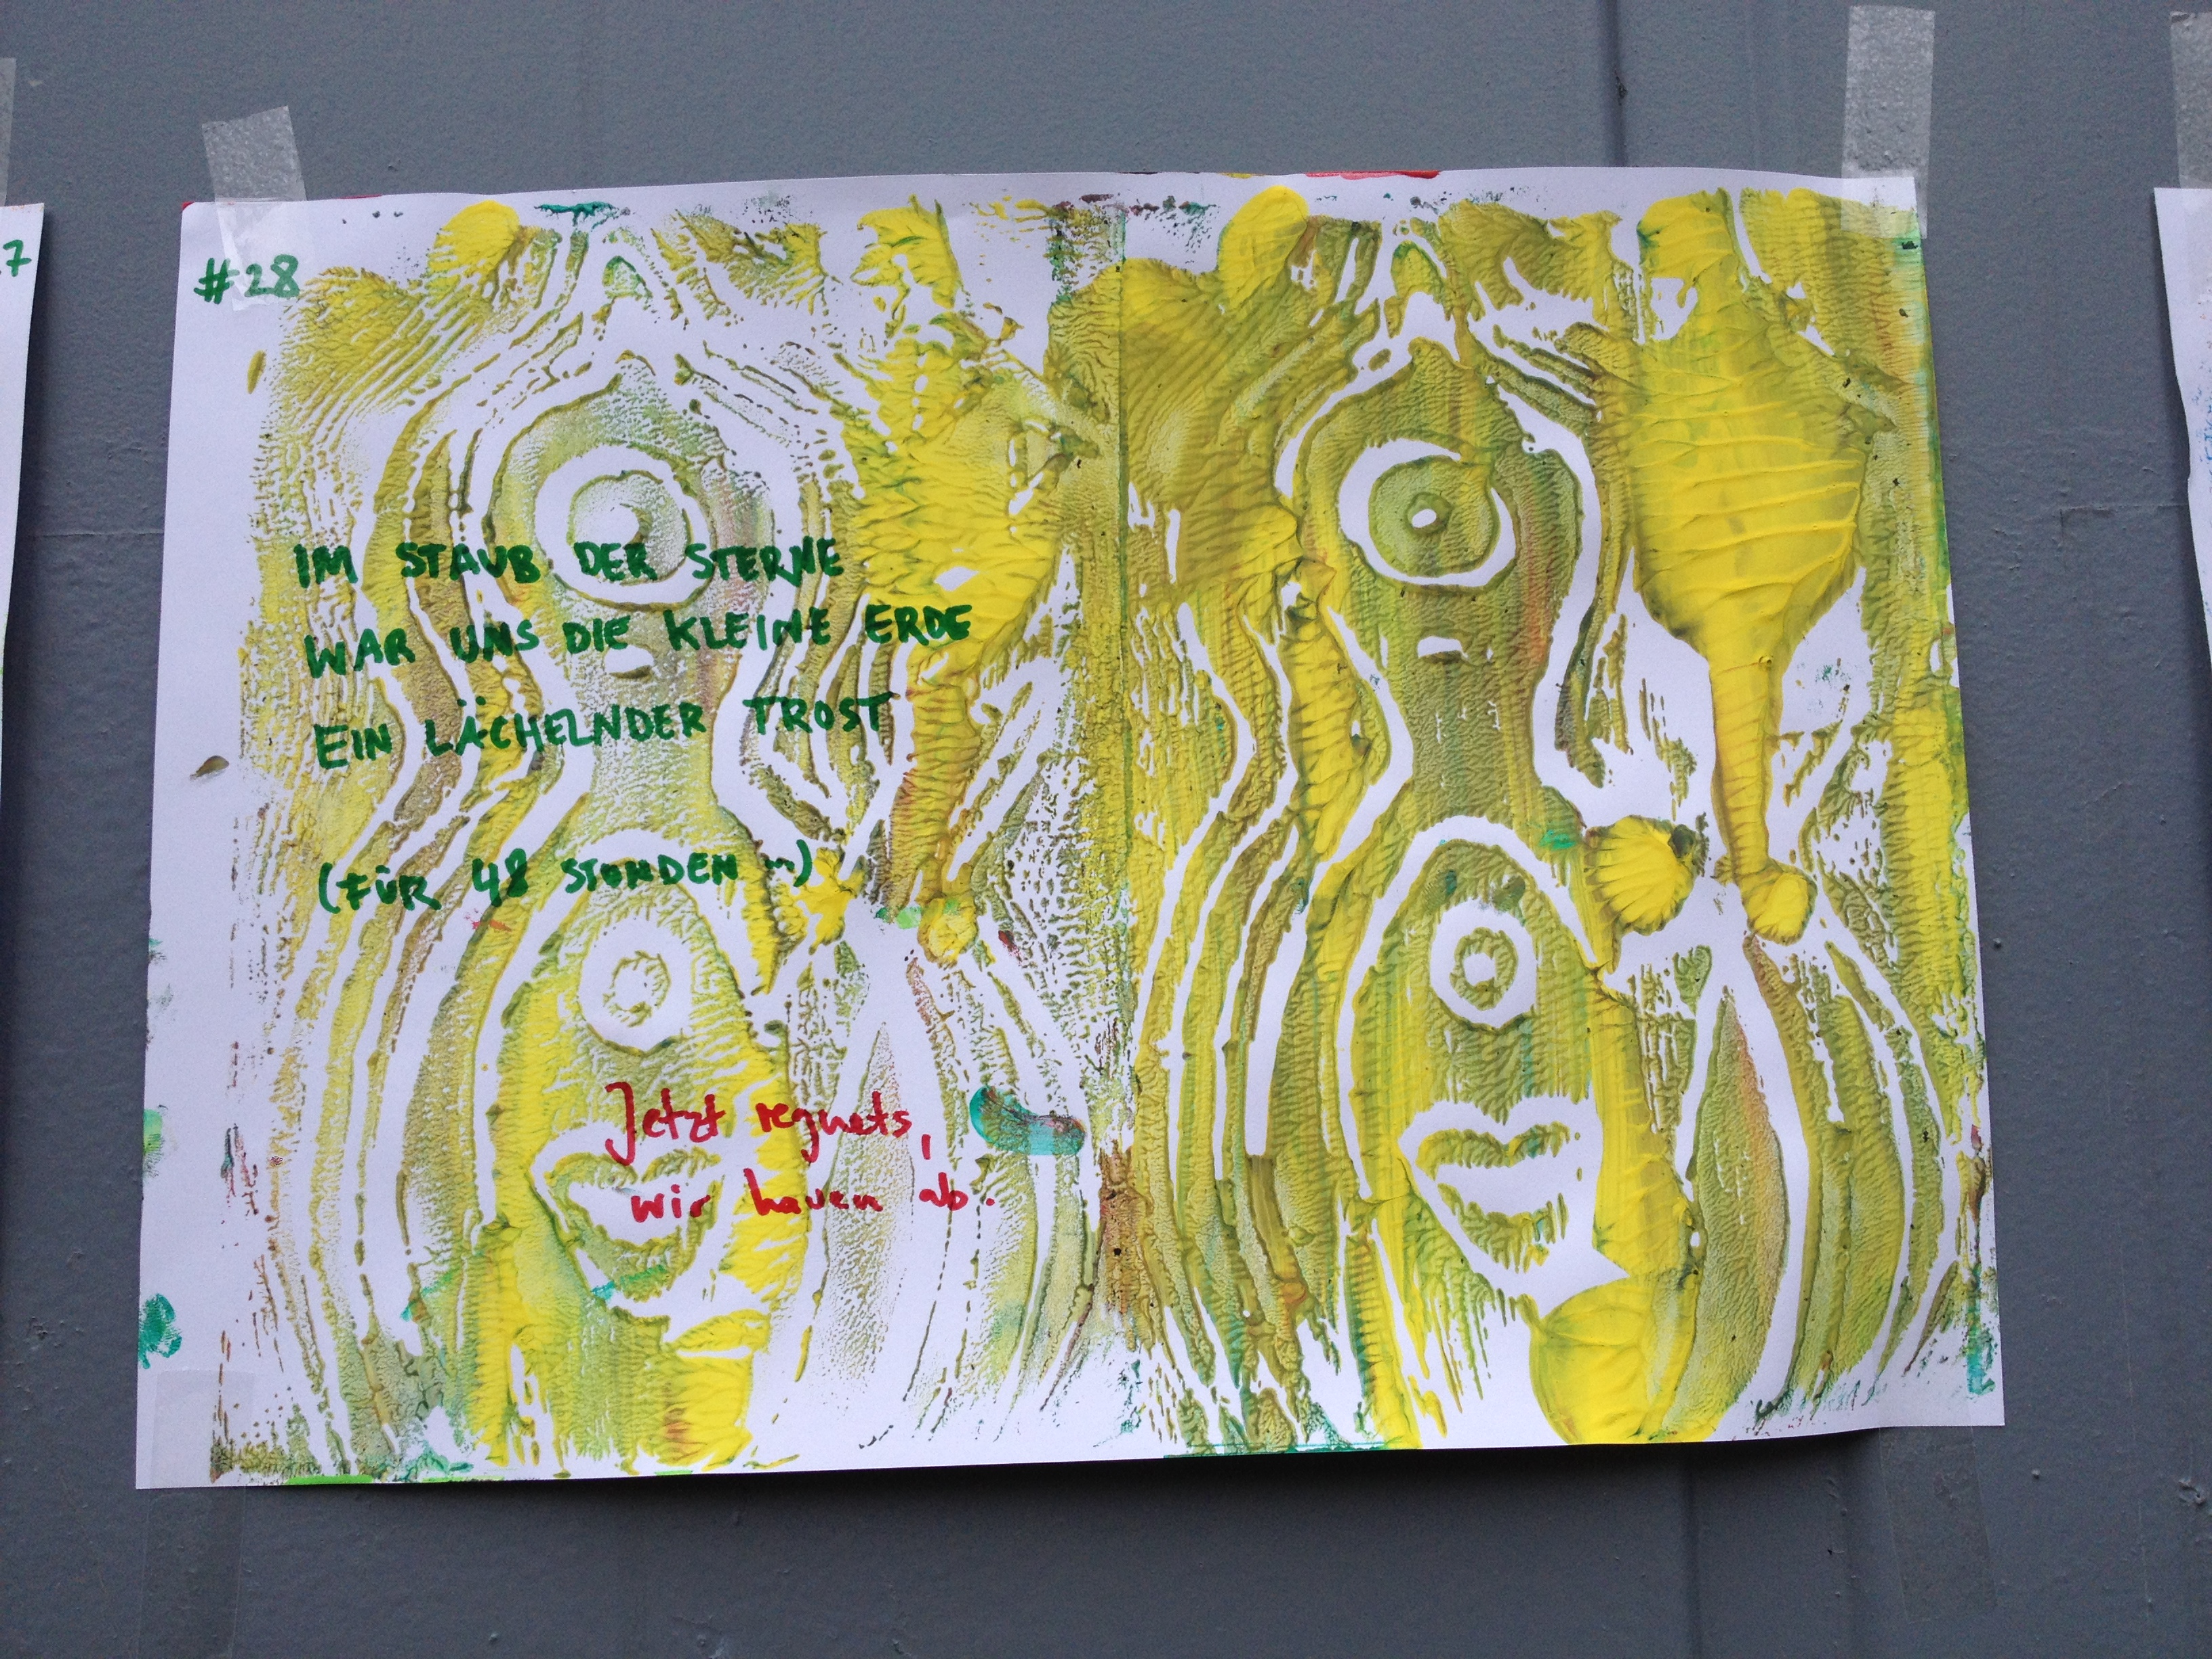 #28
IM STAUB DER STERNE
WAR UNS DIE KLEINE ERDE
EIN LÄCHELNDER TROST
(FÜR 48 STUNDEN )
Jetzt regnets,
wir hauen ab.
7